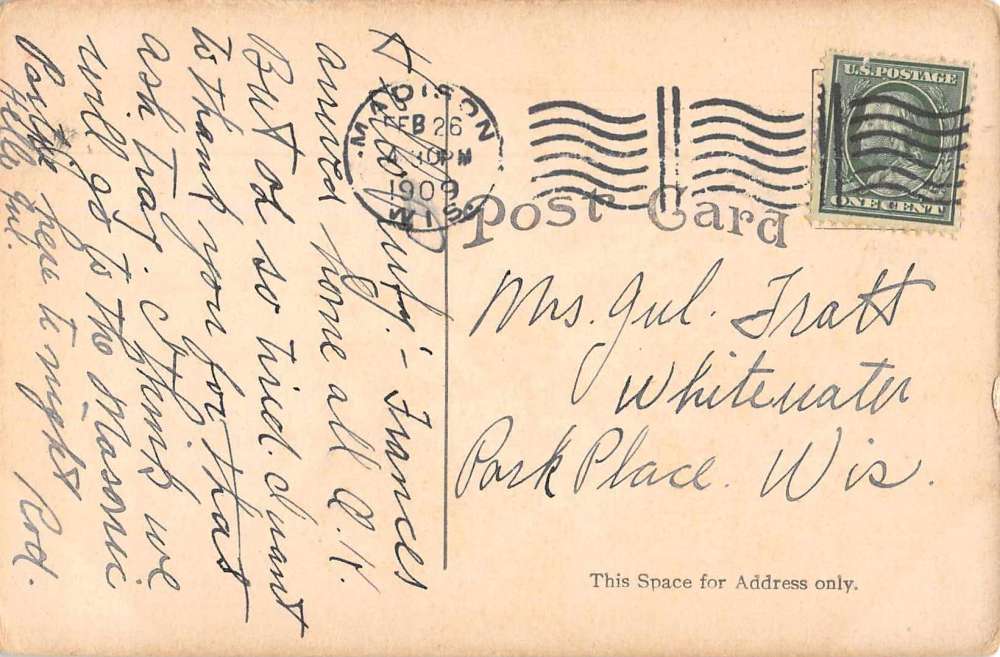 Hello July - Frances
arrived home all O.K.
But od so tired. I want
to thank you for that
ash tray. I think we
will go to the Masonic
Party here to night
Hello Gul. Rod.
MADISON
FEB 26
30PM
1909
WIS
U.S. POSTAGE
ONE CENT
Post Card
Mrs. Gul. Tratt
Whitewater
Park Place. Wis.
This Space for Address only.